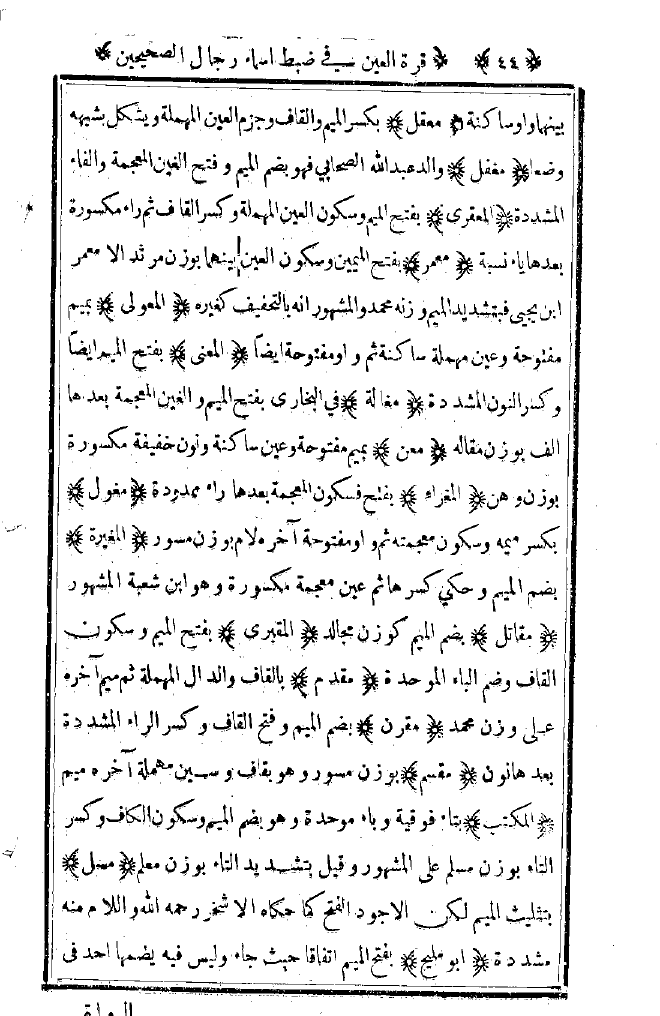 ﴿ ٤٤ ﴾ ﴿ قرة العين في ضبط اسماء رجال الصحيحين ﴾
بينهما واو ساكنة ﴿ معقل ﴾ بكسر الميم والقاف وجزم العين المهملة ويشكل بشبهه
وضعا ﴿ مغفل ﴾ والد عبد الله الصحابي فهو بضم الميم وفتح الغين المعجمة والفاء
المشددة ﴿ المعقرى ﴾ بفتح الميم وسكون العين المهملة وكسر القاف ثم راء مكسورة
بعدها ياء نسبة ﴿ معمر ﴾ بفتح الميمين وسكون العين بينهما بوزن مرثد الا معمر
ابن يحيى فبتشديد الميم وزنه محمد والمشهور انه بالتخفيف كغيره ﴿ المعولى ﴾ بميم
مفتوحة وعين مهملة ساكنة ثم واو مفتوحة ايضاً ﴿ المعنى ﴾ بفتح الميم ايضاً
وكسر النون المشددة ﴿ مغالة ﴾ في البخارى بفتح الميم والغين المعجمة بعدها
الف بوزن مقاله ﴿ معن ﴾ بميم مفتوحة وعين ساكنة ونون خفيفة مكسورة
بوزن وهن ﴿ المغراء ﴾ بفتح فسكون المعجمة بعدها راء ممدودة ﴿ مغول ﴾
بكسر ميمه وسكون معجمته ثم واو مفتوحة آخره لام بوزن مسور ﴿ المغيرة ﴾
بضم الميم وحكي كسرها ثم غين معجمة مكسورة وهو ابن شعبة المشهور
﴿ مقاتل ﴾ بضم الميم كوزن مجالد ﴿ المقبرى ﴾ بفتح الميم وسكون
القاف وضم الباء الموحدة ﴿ مقدم ﴾ بالقاف والدال المهملة ثم ميم آخره
على وزن محمد ﴿ مقرن ﴾ بضم الميم وفتح القاف وكسر الراء المشددة
بعدها نون ﴿ مقسم ﴾ بوزن مسور وهو بقاف وسين مهملة آخره ميم
﴿ المكتب ﴾ بتاء فوقية وباء موحدة وهو بضم الميم وسكون الكاف وكسر
التاء بوزن مسلم على المشهور وقيل بتشديد التاء بوزن معلم ﴿ مضل ﴾
بتثليث الميم لكن الاجود الفتح كما حكاه الاشخر رحمه الله واللام منه
مشددة ﴿ ابو مليح ﴾ بفتح الميم اتفاقا حيث جاء وليس فيه بضمها احد فى